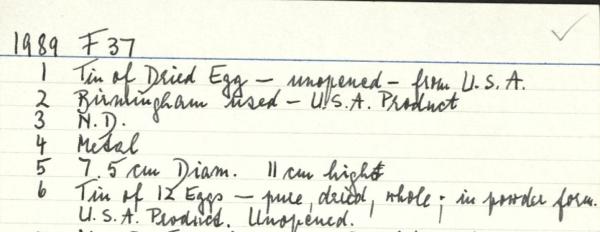 1989 F 37
1 Tin of Dried Egg – unopened – from U.S.A.
2 Birmingham used – U.S.A. Product
3 N.D.
4 Metal
5 7.5 cm Diam. 11 cm high
6 Tin of 12 Eggs – pure, dried, whole; in powder form.
U.S.A. Product. Unopened.